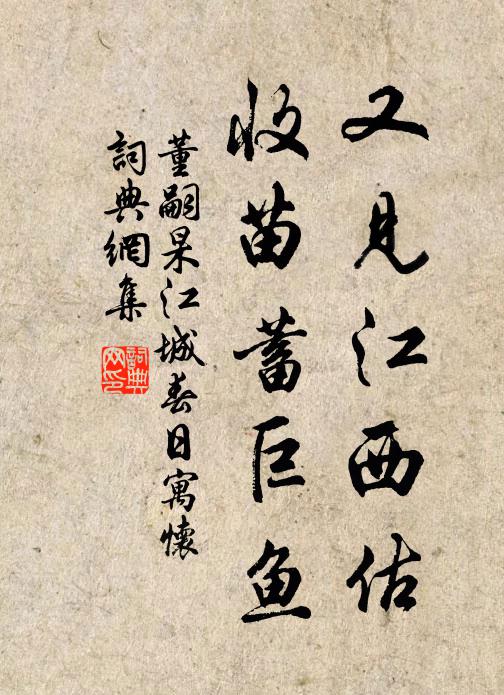 又见江西估
收苗蓄巨鱼
董嗣杲江城春日寓懷
詞典網集
詞典网印